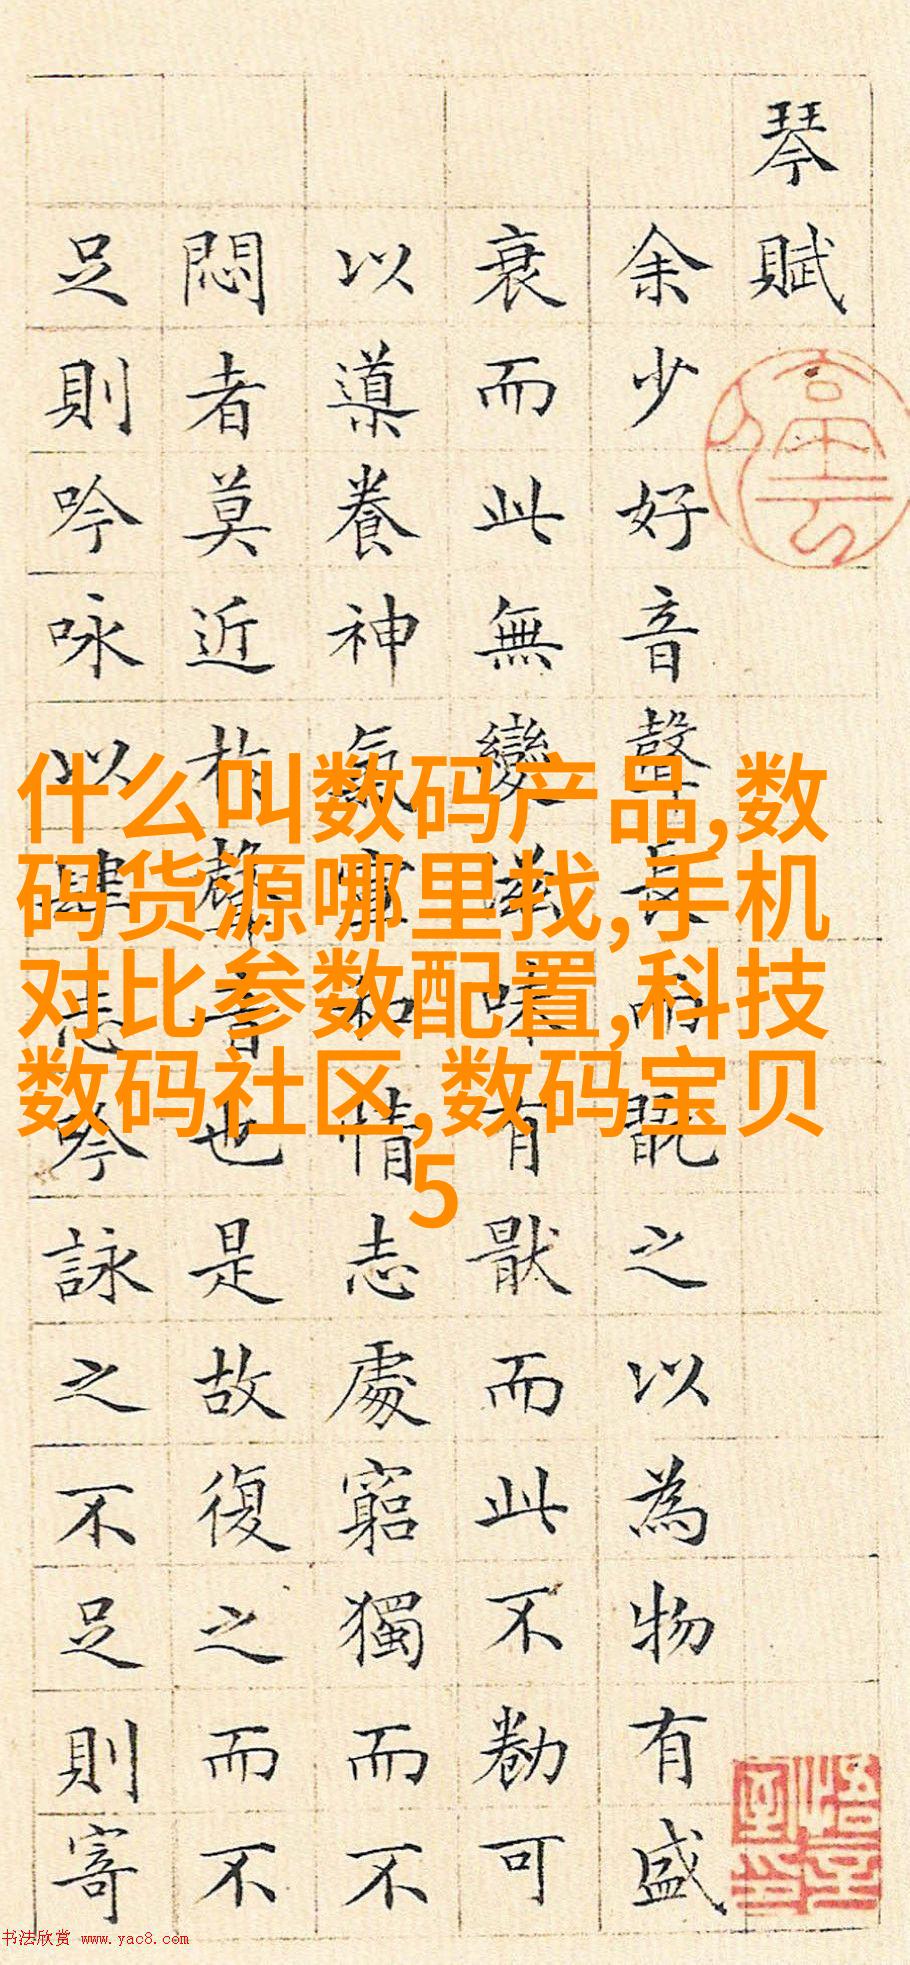 琴賦
余少好音聲長而翫之以為物有盛
衰而此無變滋味有猒而此不勌可
以導養神氣宣和情志處窮獨而不
悶者莫近於聲音也是故復之而不
足則吟咏以肆志吟詠之不足則寄
什么叫数码产品,数
码货源哪里找,手机
对比参数配置,科技
数码社区,数码宝贝
5
书法欣赏 www.yac8.com